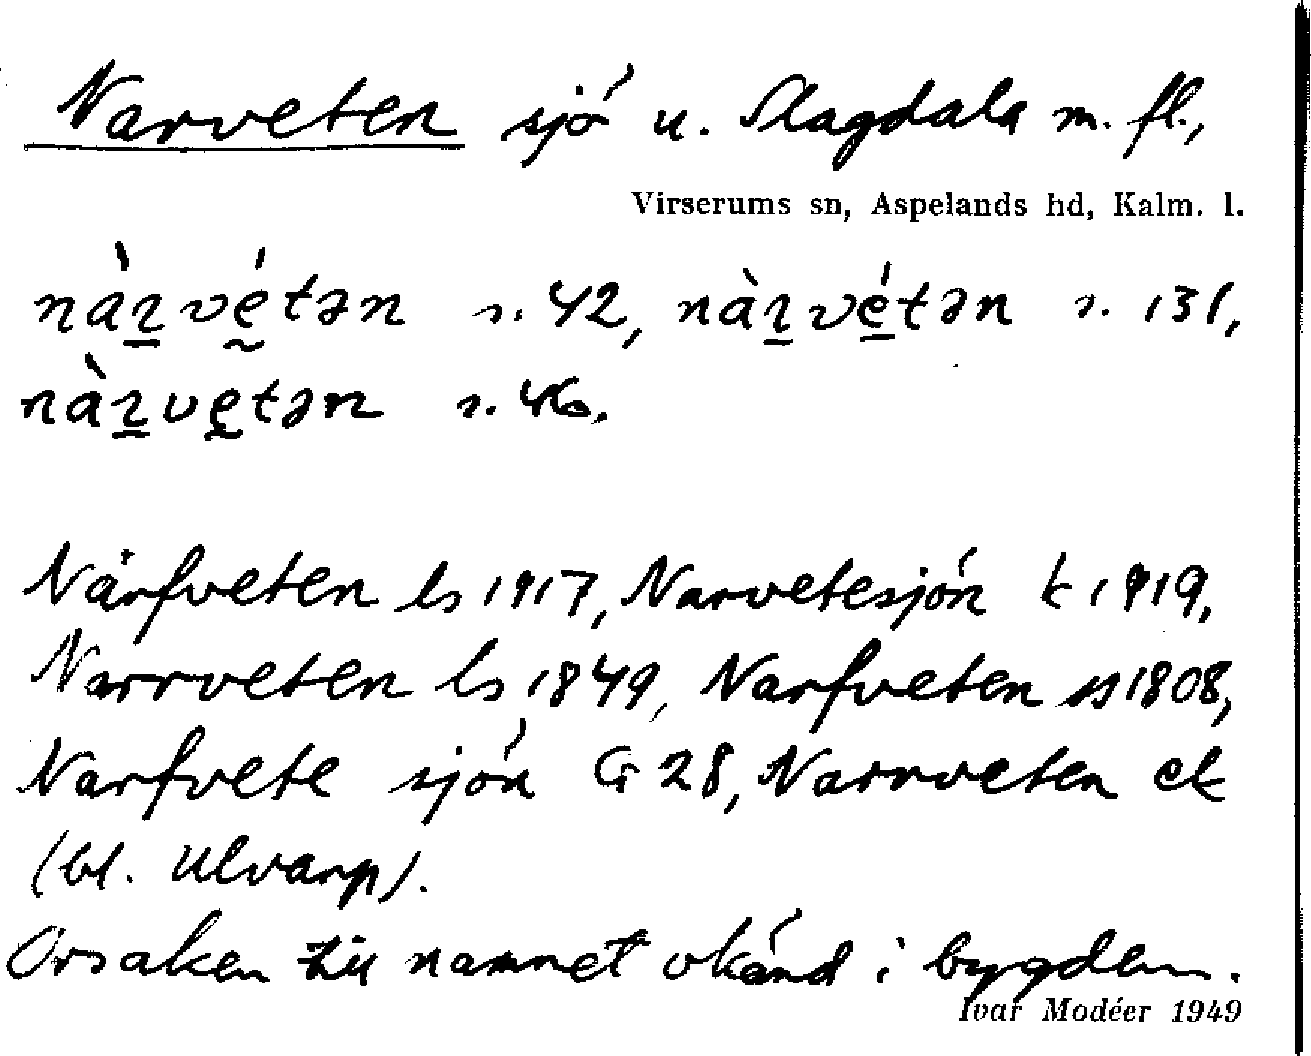 Narveten sjö u. Slagdala m. fl.,
Virserums sn, Aspelands hd, Kalm. l.
nàɀ̱vḛ́tən s. 42, nàɀ̱vé̱tən s. 131,
nàɀ̱vḛtən s. 46.
Närfveten ls 1917, Narvetesjön k 1919,
Narrveten ls 1849, Narfveten ss 1808,
Narfvete sjön G 28, Narrveten ek
(bl. Ulvarp).
Orsaken till namnet okänd i bygden.
Ivar Modéer 1949